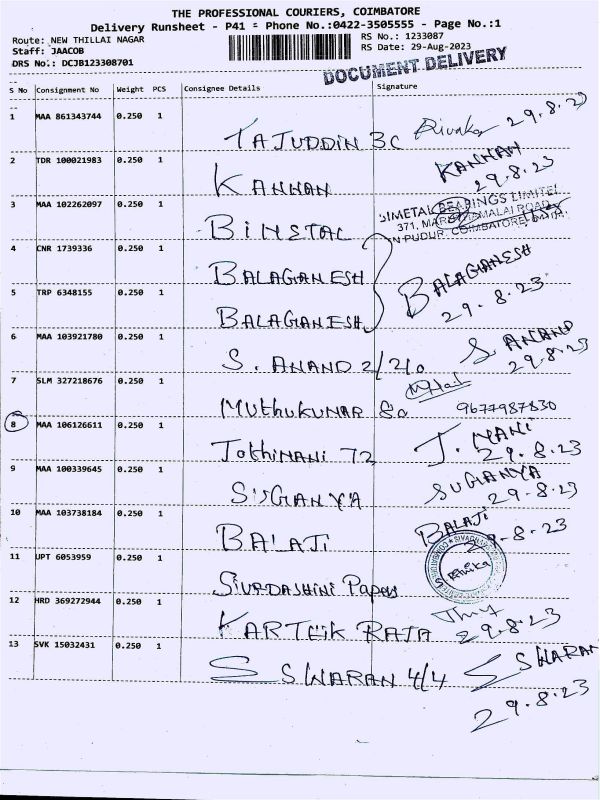 THE PROFESSIONAL COURIERS, COIMBATORE
Delivery Runsheet - P41 - Phone No.:0422-3505555 - Page No.:1
Route: NEW THILLAI NAGAR
RS No.: 1233087
Staff: JAACOB
RS Date: 29-Aug-2023
DRS No.: DCJB123308701
DOCUMENT DELIVERY
S No Consignment No Weight PCS Consignee Details Signature
1 MAA 861343744 0.250 1
TAJUDDIN 3C Divakar 29.8.23
2 TDR 100021983 0.250 1
KANNAN KANNAN 29.8.23
3 MAA 102262097 0.250 1
BIMETAL BIMETAL BEARINGS LIMITED
371, MARUDHAMALAI ROAD,
N PUDUR, COIMBATORE
4 CNR 1739336 0.250 1
BALAGANESH BALAGANESH
5 TRP 6348155 0.250 1
BALAGANESH 29.8.23
6 MAA 103921780 0.250 1
S. ANAND 2/210 S ANAND 29.8.23
7 SLM 327218676 0.250 1
Muthukumar 80 9677987830
8 MAA 106126611 0.250 1
Jothimani 72 J. MANI 29.8.23
9 MAA 100339645 0.250 1
SUGANYA SUGANYA 29.8.23
10 MAA 103738184 0.250 1
BALAJI BALAJI 29.8.23
11 UPT 6053959 0.250 1
Sivadashini Papers
12 HRD 369272944 0.250 1
KARTHIK RAJA 29.8.23
13 SVK 15032431 0.250 1
ESWARAN 4/4 ESWARAN
29.8.23